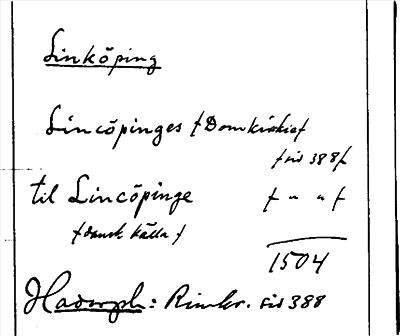 Linköping
Lincöpinges /Domkirkia/
/sid 388/
til Lincöpinge / " " /
/dansk källa/
1504
Hadorph: Rimkr. sid 388